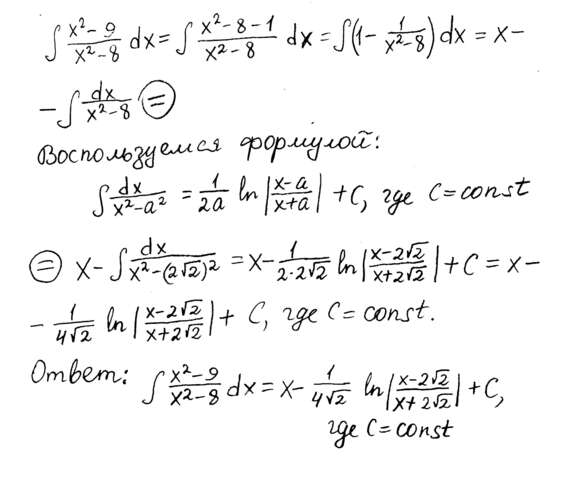 ∫ (x²-9)/(x²-8) dx = ∫ (x²-8-1)/(x²-8) dx = ∫(1 - 1/(x²-8)) dx = x -
- ∫ dx/(x²-8) ⊜
Воспользуемся формулой:
∫ dx/(x²-a²) = 1/(2a) ln|(x-a)/(x+a)| + C, где C = const
⊜ x - ∫ dx/(x²-(2√2)²) = x - 1/(2·2√2) ln|(x-2√2)/(x+2√2)| + C = x -
- 1/(4√2) ln|(x-2√2)/(x+2√2)| + C, где C = const.
Ответ: ∫ (x²-9)/(x²-8) dx = x - 1/(4√2) ln|(x-2√2)/(x+2√2)| + C,
где C = const